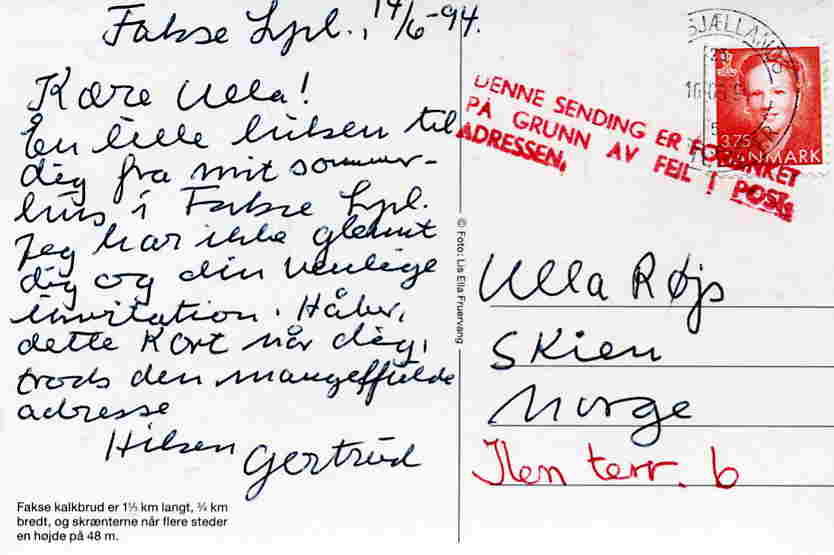 Fakse Lpl., 14/6-94.
Kære Ulla!
En lille hilsen til
dig fra mit sommer-
hus i Fakse Lpl.
Jeg har ikke glemt
dig og din venlige
invitation. Håber,
dette kort når dig,
trods den mangelfulde
adresse
Hilsen
Gertrud
Fakse kalkbrud er 1½ km langt, ¾ km
bredt, og skrænterne når flere steder
en højde på 48 m.
© Foto: Lis Ella Fruervang
DENNE SENDING ER FORSINKET
PÅ GRUNN AV FEIL I POST-
ADRESSEN.
SJÆLLANDS
3.75
DANMARK
Ulla Røjs
Skien
Norge
Ilen terr. 6